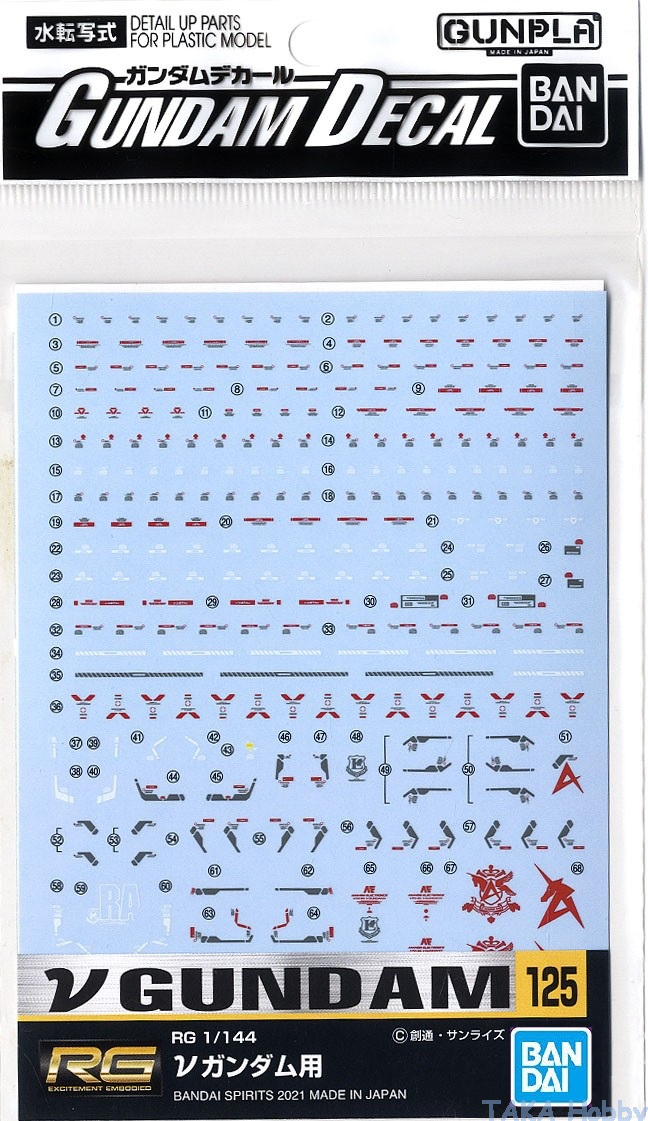 水転写式
DETAIL UP PARTS
FOR PLASTIC MODEL
GUNPLA
MADE IN JAPAN
ガンダムデカール
GUNDAM DECAL
BAN
DAI
① ②
③ ④
⑤ ⑥
⑦ ⑧ ⑨
⑩ ⑪ ⑫
⑬ ⑭
⑮ ⑯
⑰ ⑱
⑲ ⑳ ㉑
㉒ ㉔ ㉖
㉓ ㉕ ㉗
㉘ ㉙ ㉚ ㉛
㉜ ㉝
㉞
㉟
㊱
㊲ ㊴ ㊶ ㊷ ㊸ ㊻ ㊼ ㊽ 51
㊳ ㊵ ㊹ ㊺ ㊾ ㊿
52 53 54 55 56 57
58 59 60 61 62 65 66 67 68
RA
63 64
ν GUNDAM 125
RG
EXCITEMENT EMBODIED
RG 1/144
νガンダム用
BANDAI SPIRITS 2021 MADE IN JAPAN
Ⓒ創通・サンライズ
BAN
DAI
TAKA Hobby